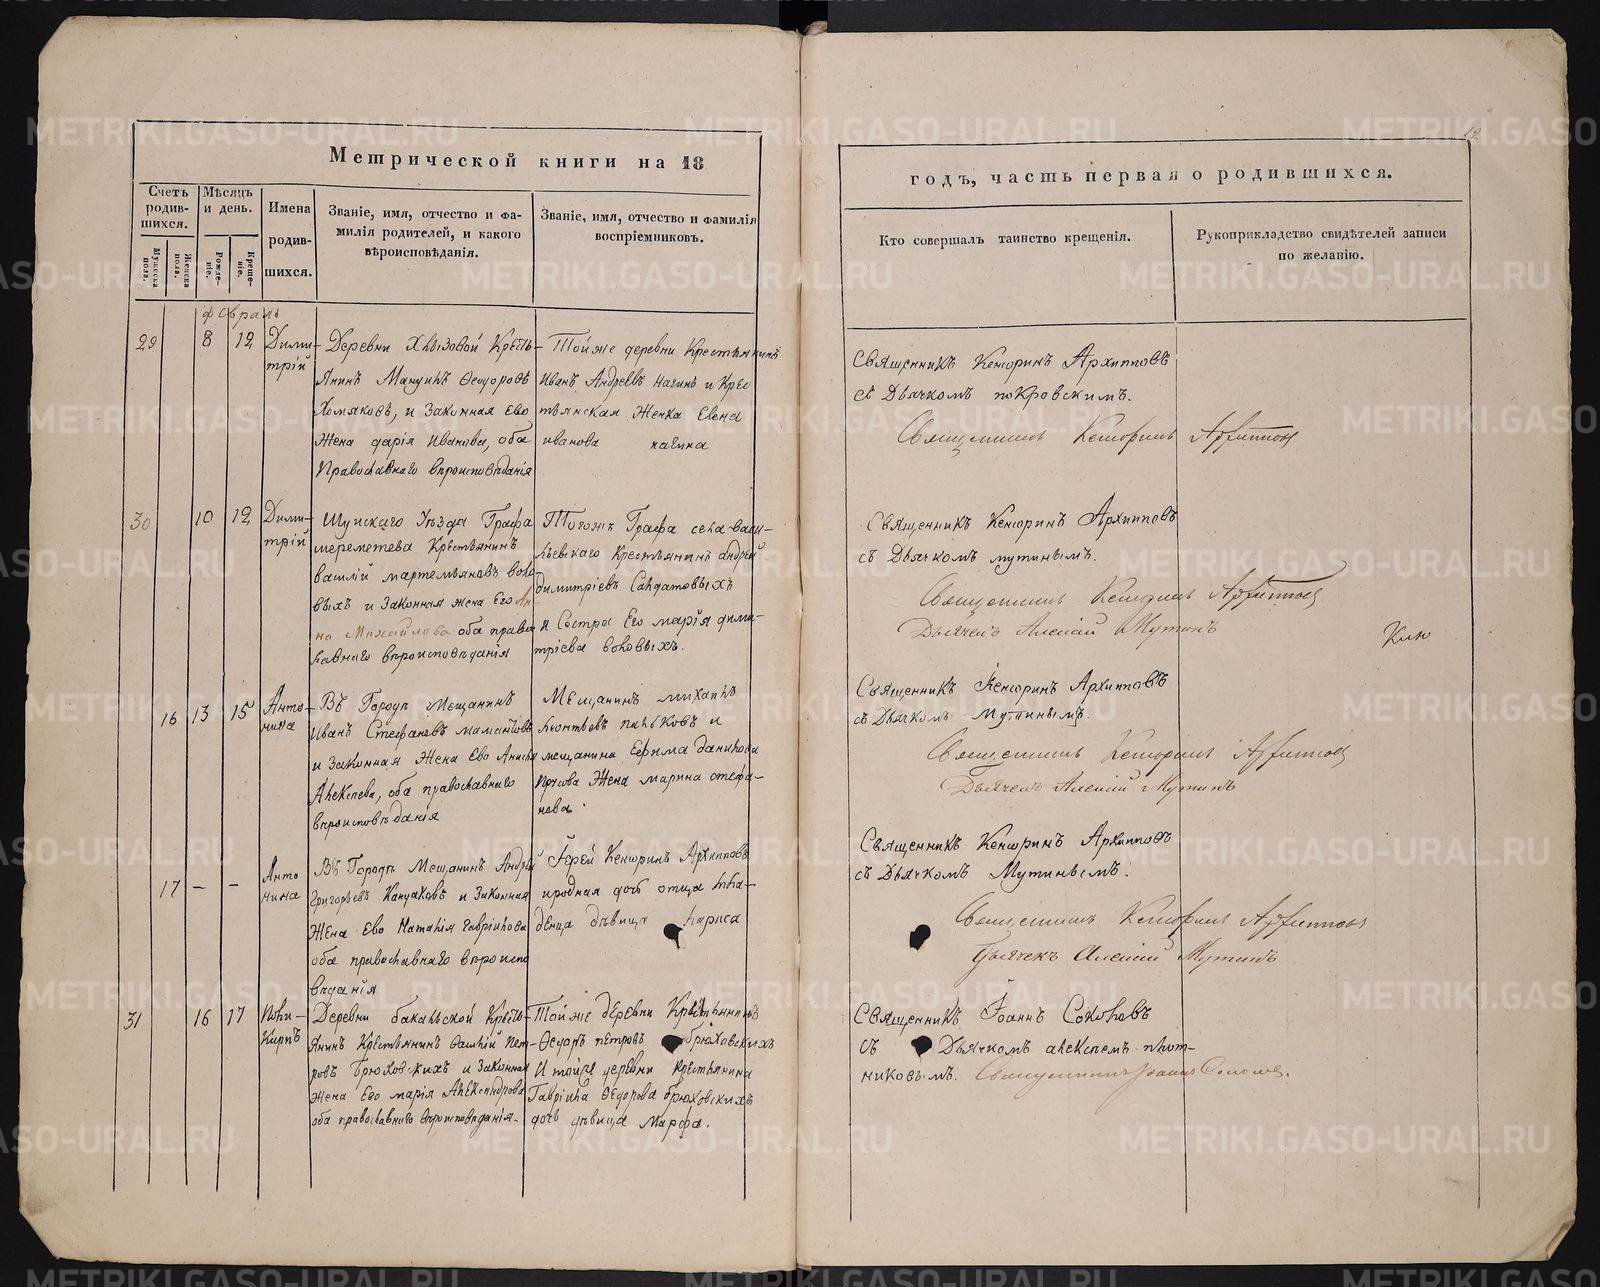 Метрической книги на 18
Счетъ родившихся.
Мужеска пола.
Женска пола.
Мѣсяцъ и день.
Рождение.
Крещение.
Имена родившихся.
Званіе, имя, отчество и фамилія родителей, и какого вѣроисповѣданія.
Званіе, имя, отчество и фамилія воспріемниковъ.
февраль
29 8 12
Дими-
трій
Деревни Хвызовой Кресть-
янинъ Өеодоровъ
Хомяковъ, и Законная Ево
Жена дарія Иванова, оба
Православнаго вѣроисповѣданія
Той же деревни Крестьянинъ
Иванъ Андреевъ и Крес
тьянская Женка Елена
иванова
30 10 12
Дими-
трій
Шуйскаго Уѣзда Графа
шереметева Крестьянинъ
василій мартемьяновъ воло
выхъ и Законная жена Его Ан
на Михайлова оба право
славнаго вѣроисповѣданія
Тогожъ Графа села васи-
льевскаго Крестьянинъ андрей
димитріевъ Салдатовыхъ
и Сестра Его марія дими-
тріева воловыхъ.
16 13 15
Анто-
нина
Въ Городѣ Мещанинъ
Иванъ Стефановъ мамонтовъ
и Законная Жена Ево Анисья
Алексѣева, оба православнаго
вѣроисповѣданія
Мещанинъ михаилъ
Леонтьевъ и
мещанина Ефима данилова
Жена марина стефа-
нова.
17 - -
Анто
нина
Въ Городѣ Мещанинъ Андрей
Григорьевъ и Законная
Жена Ево Наталія Гавріилова
оба православнаго вѣроиспо
вѣданія
Іерей Кенсоринъ Архипповъ
и родная дочь отца Мла-
денца дѣвица Лариса
31 16 17
Поли-
Карпъ
Деревни бакальской Кресть-
янинъ Крестьянинъ Василій Пет-
ровъ Брюховскихъ и Законная
Жена Его марія Александрова
оба православнаго вѣроисповѣданія.
Той же деревни Крестьянинъ
Өедоръ петровъ брюховскихъ
И той же деревни крестьянина
Гавріила Өедорова брюховскихъ
дочь дѣвица Марфа.
12
годъ, часть первая о родившихся.
Кто совершалъ таинство крещенія.
Рукоприкладство свидѣтелей записи по желанію.
Священникъ Кенсоринъ Архипповъ
съ Дьячкомъ покровскимъ.
Священникъ Кенсоринъ Архипповъ
Священникъ Кенсоринъ Архипповъ
съ Дьячкомъ мутинымъ.
Священникъ Кенсоринъ Архипповъ
Дьячекъ Алексій Мутинъ
Священникъ Кенсоринъ Архипповъ
съ Дьячкомъ Мутинымъ.
Священникъ Кенсоринъ Архипповъ
Дьячекъ Алексій Мутинъ
Священникъ Кенсоринъ Архипповъ
съ Дьячкомъ Мутинымъ.
Священникъ Кенсоринъ Архипповъ
Дьячекъ Алексій Мутинъ
Священникъ Іоаннъ Соколовъ
съ Дьячкомъ алексѣемъ плот-
никовымъ. Священникъ Іоаннъ Соколовъ.